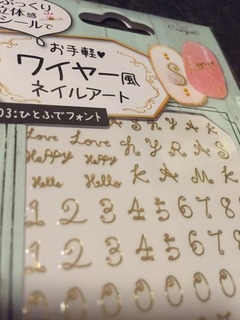 ぷっくり
立体感
シールで
お手軽♥
ワイヤー風
ネイルアート
03:ひとふでフォント
Love Love
Happy Happy
Hello Hello K A M K
1 2 3 4 5 6 7 8
1 2 3 4 5 6 7 8
0 0 0 0 0 0 0